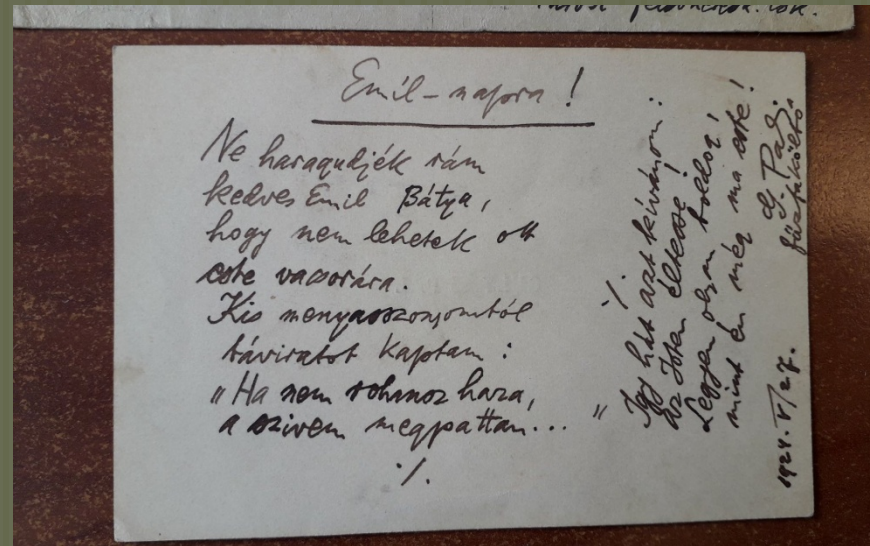 városi
Emil-napra!
Ne haragudjék rám
kedves Emil Bátya,
hogy nem lehetek ott
este vacsorára.
Kis menyasszonyomtól
táviratot kaptam:
„Ha nem rohansz haza,
a szivem megpattan... "
./.
./.
Igy hát azt kívánom:
az Isten éltesse!
Legyen olyan boldog,
mint én még ma este!
ifj. Paál
fűzfaköltő
1924. V/27.